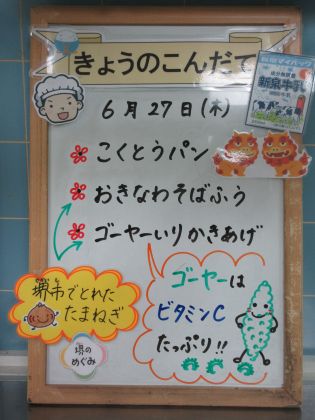 きょうのこんだて
6月27日(木)
こくとうパン
おきなわそばふう
ゴーヤーいりかきあげ
堺市でとれた
たまねぎ
堺の
めぐみ
ゴーヤーは
ビタミンC
たっぷり!!
新泉牛乳